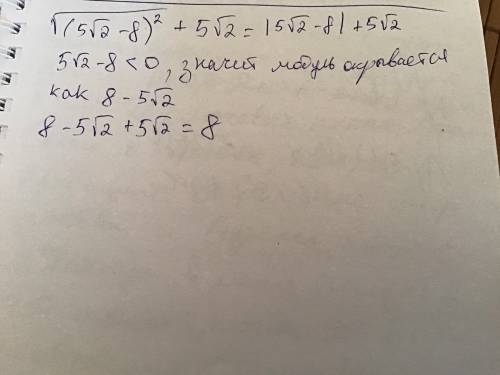 √(5√2-8)² + 5√2 = |5√2-8| + 5√2
5√2-8 < 0, значит модуль скрывается
как 8-5√2
8-5√2 + 5√2 = 8